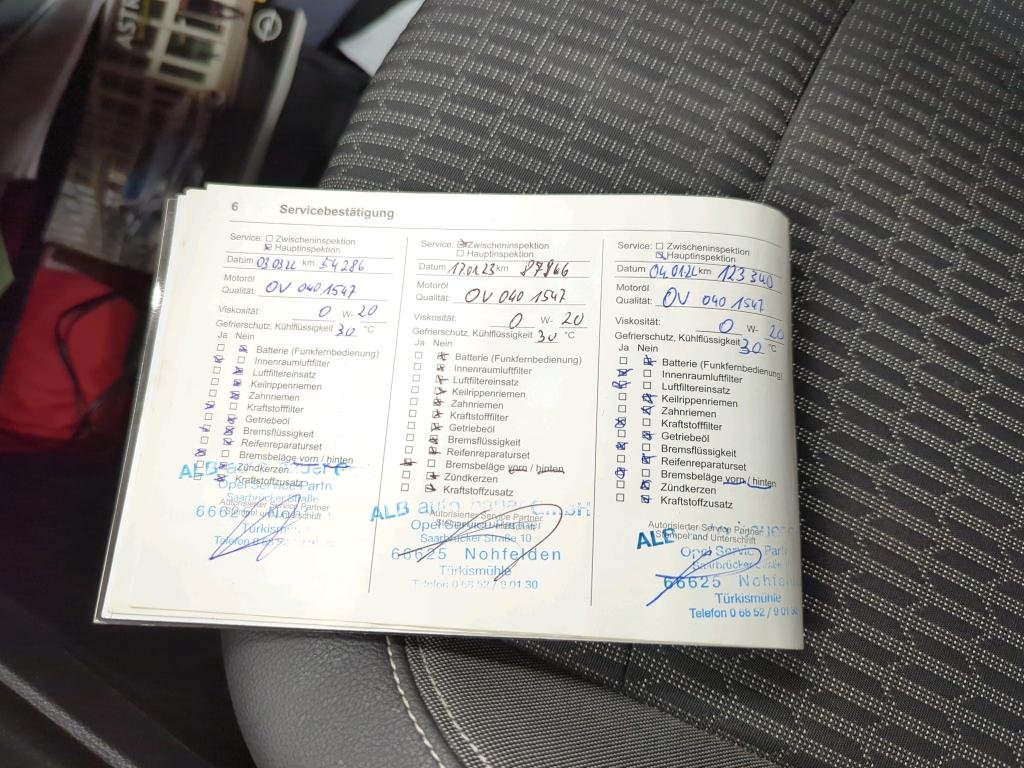 ASTR
6 Servicebestätigung
Service: Zwischeninspektion
Hauptinspektion
Datum 03.03.22 km 54 286
Motoröl
Qualität: OV 040 1547
Viskosität: 0 W- 20
Gefrierschutz, Kühlflüssigkeit 30 °C
Ja Nein
Batterie (Funkfernbedienung)
Innenraumluftfilter
Luftfiltereinsatz
Keilrippenriemen
Zahnriemen
Kraftstofffilter
Getriebeöl
Bremsflüssigkeit
Reifenreparaturset
Bremsbeläge vorn / hinten
Zündkerzen
Kraftstoffzusatz
ALB
Opel Service Partn
Saarbrücker Straße
Autorisierter Service Partner
Stempel und Unterschrift
Türkism
Telefon 0 68
Service: Zwischeninspektion
Hauptinspektion
Datum 17.01.23 km 87966
Motoröl
Qualität: OV 040 1547
Viskosität: 0 W- 20
Gefrierschutz, Kühlflüssigkeit 30 °C
Ja Nein
Batterie (Funkfernbedienung)
Innenraumluftfilter
Luftfiltereinsatz
Keilrippenriemen
Zahnriemen
Kraftstofffilter
Getriebeöl
Bremsflüssigkeit
Reifenreparaturset
Bremsbeläge vorn / hinten
Zündkerzen
Kraftstoffzusatz
ALB auto bauer GmbH
Autorisierter Service Partner
Opel Service Partner
Stempel und Unterschrift
Saarbrücker Straße 10
66625 Nohfelden
Türkismühle
Telefon 0 68 52 / 9 01 30
Service: Zwischeninspektion
Hauptinspektion
Datum 04.01.24 km 123 340
Motoröl
Qualität: OV 040 1547
Viskosität: 0 W- 20
Gefrierschutz, Kühlflüssigkeit 30 °C
Ja Nein
Batterie (Funkfernbedienung)
Innenraumluftfilter
Luftfiltereinsatz
Keilrippenriemen
Zahnriemen
Kraftstofffilter
Getriebeöl
Bremsflüssigkeit
Reifenreparaturset
Bremsbeläge vorn / hinten
Zündkerzen
Kraftstoffzusatz
Autorisierter Service Partner
Stempel und Unterschrift
ALB
Opel Service Partn
Saarbrücker Straße
66625 Nohfelden
Türkismühle
Telefon 0 68 52 / 9 01 30